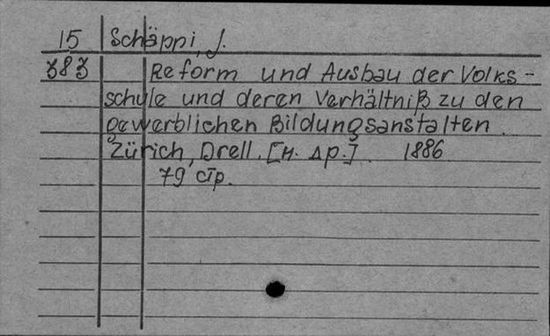 15 Schäppi, J.
383 Reform und Ausbau der Volks-
schule und deren Verhältniß zu den
gewerblichen Bildungsanstalten.
Zürich, Orell. [и. др.]. 1886
79 стр.